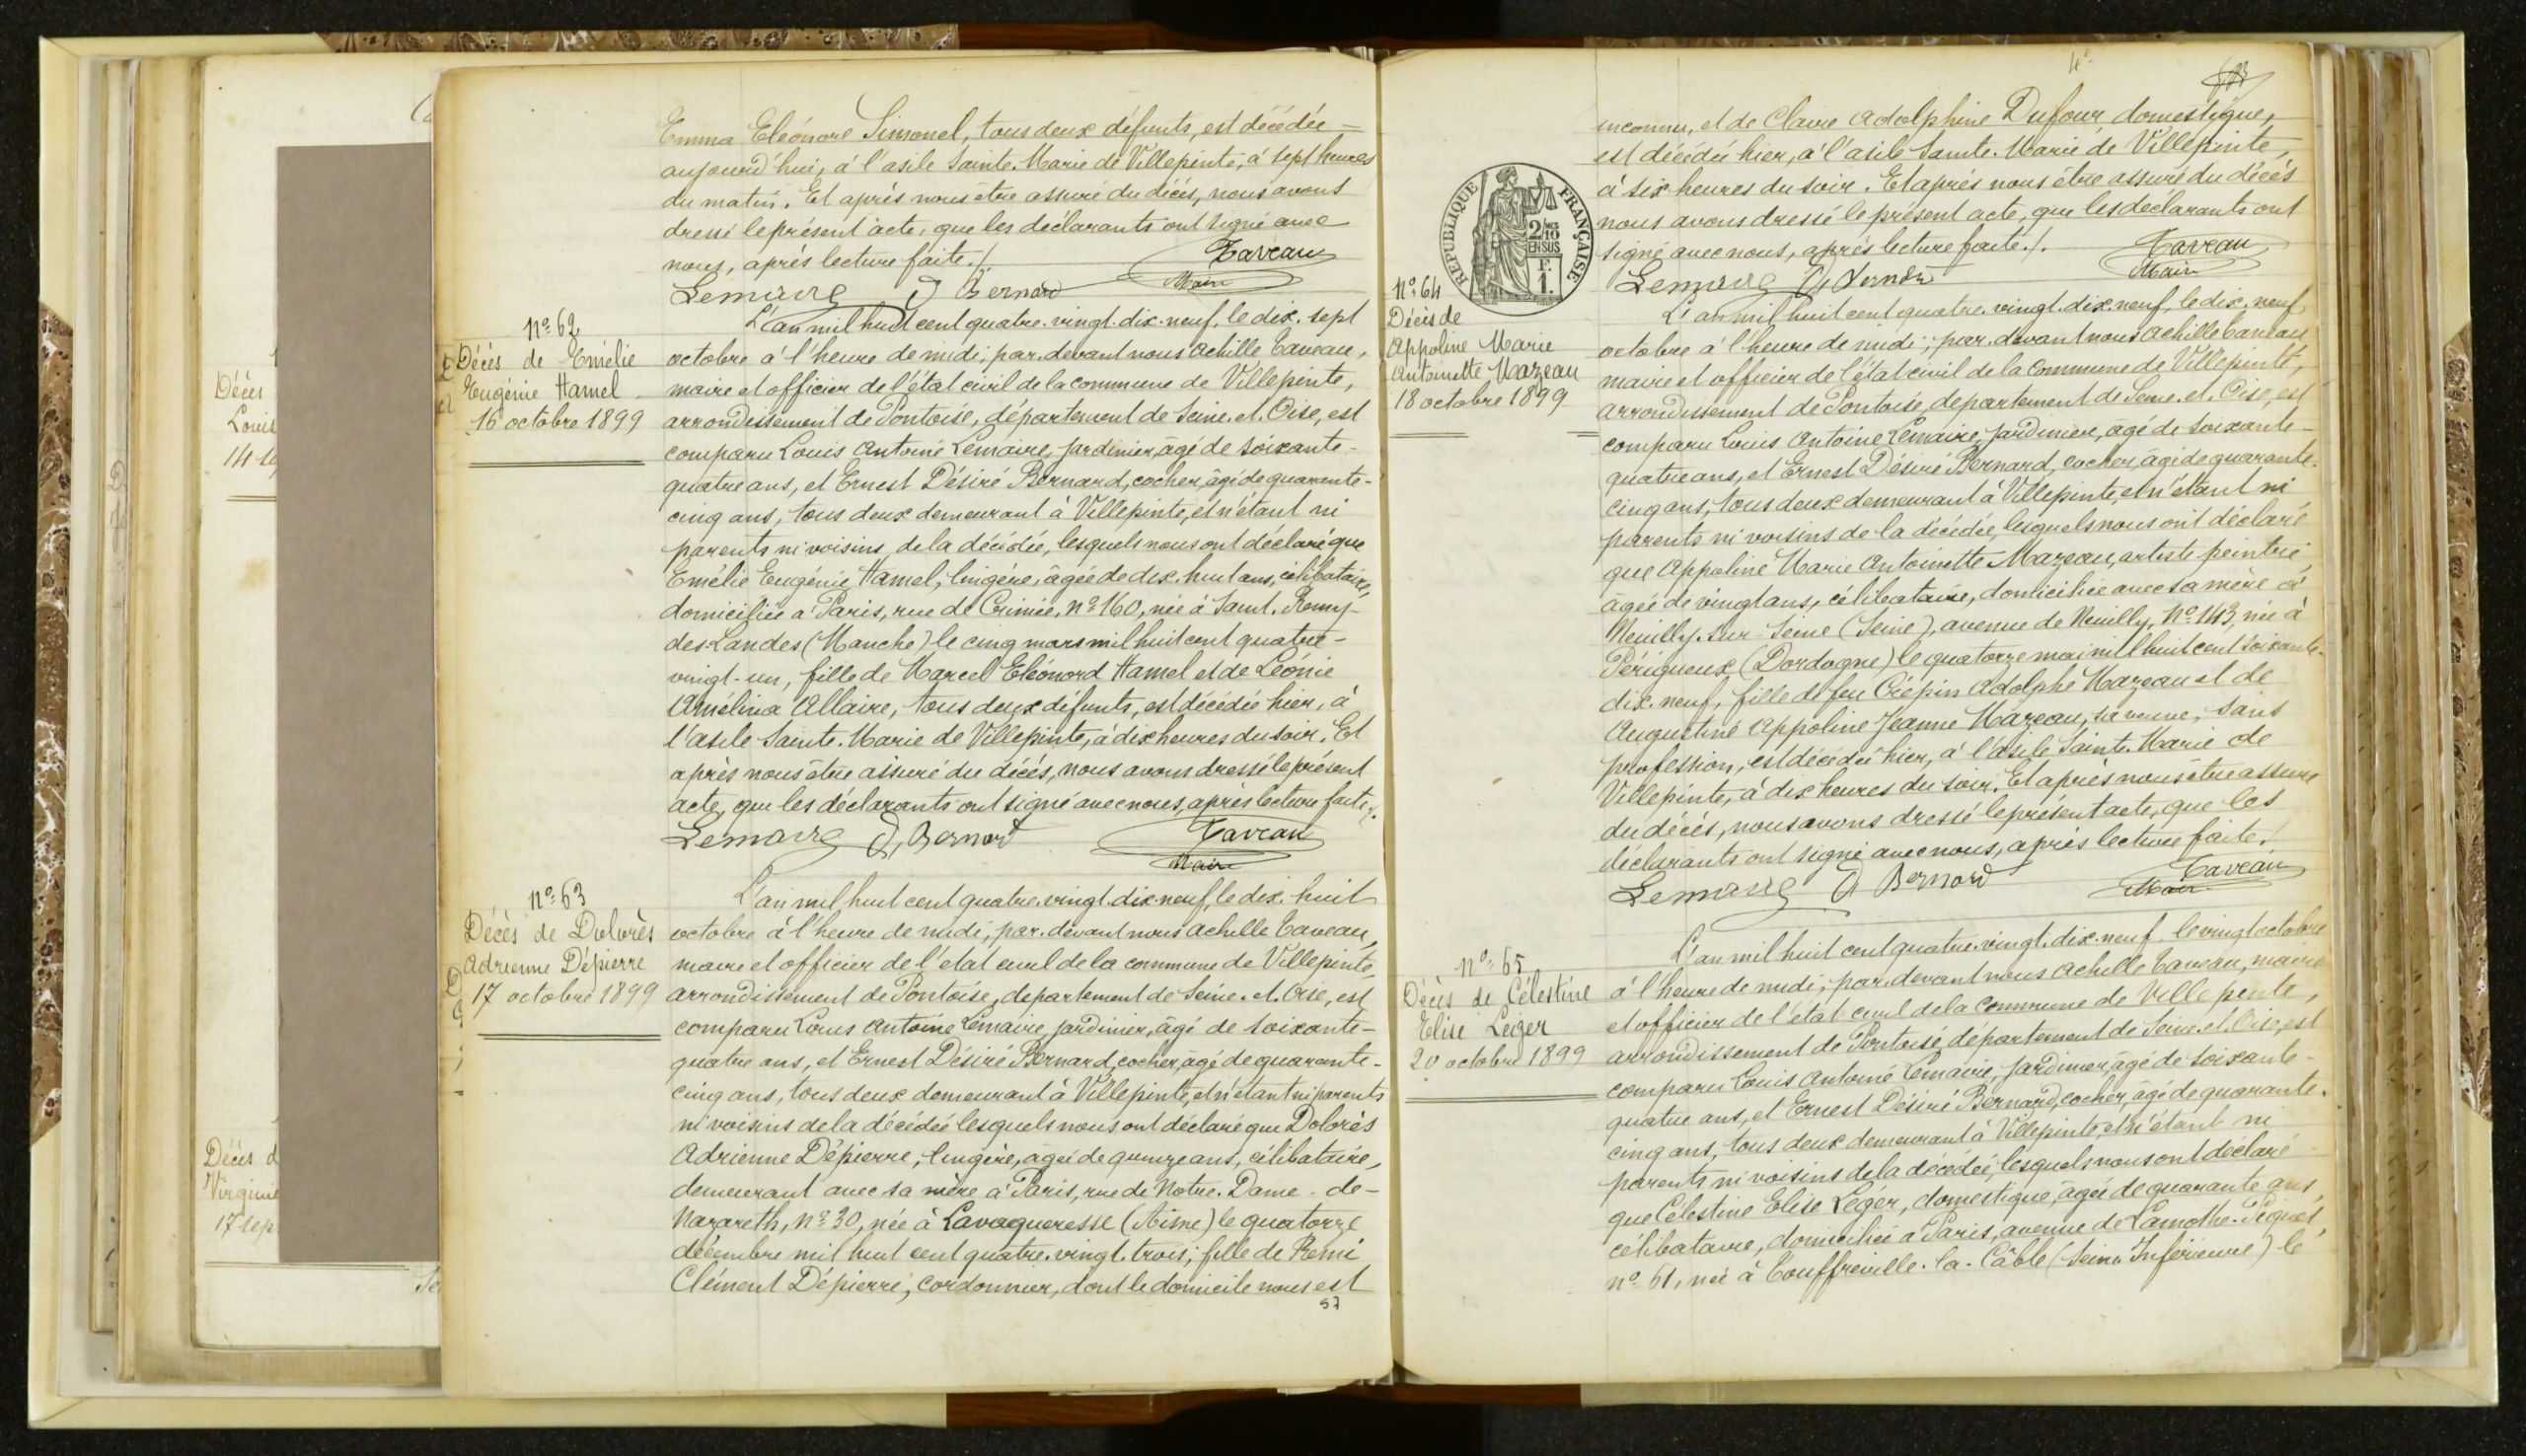 Décès
Louis
14 se
Décès d
Virginie
17 sep
Emma Eléónore Simonel, tous deux défunts, est décédée =
aujourd'hui, à l'asile Sainte. Marie de Villepinte, à sept heures
du matin. Et après nous être assuré du décès, nous avons
dressé le présent acte, que les déclarants ont signé avec
nous, après lecture faite./.
Taveau
Maire
Lemaire D Bernard
n° 62
Décès de Emélie
Eugénie Hamel
16 octobre 1899
L'an mil huit cent quatre. vingt. dix. neuf, le dix. sept
octobre à l'heure de midi, par. devant nous Achille Taveau,
maire et officier de l'état civil de la commune de Villepinte,
arrondissement de Pontoise, département de Seine. et. Oise, est
comparu Louis Antoine Lemaire, jardinier, âgé de soixante-
quatre ans, et Ernest Désiré Bernard, cocher, âgé de quarante-
cinq ans, tous deux demeurant à Villepinte, et n'étant ni
parents ni voisins de la décédée, lesquels nous ont déclaré que
Emélie Eugénie Hamel, lingère, âgée de dix. huit ans, célibataire,
domiciliée à Paris, rue de Crimée, n° 160, née à Saint. Remy-
des-Landes (Manche) le cinq mars mil huit cent quatre-
vingt-un, fille de Marcel Eléonord Hamel et de Léonie
Amélina Allaire, tous deux défunts, est décédée hier, à
l'asile Sainte. Marie de Villepinte, à dix heures du soir. Et
après nous être assuré du décès, nous avons dressé le présent
acte, que les déclarants ont signé avec nous, après lecture faite./.
Lemaire D, Bernard Taveau
Maire
n° 63
Décès de Dolorès
Adrienne Dépierre
17 octobre 1899
L'an mil huit cent quatre. vingt. dix. neuf, le dix. huit
octobre à l'heure de midi, par. devant nous Achille Taveau,
maire et officier de l'état civil de la commune de Villepinte,
arrondissement de Pontoise, département de Seine. et. Oise, est
comparu Louis Antoine Lemaire, jardinier, âgé de soixante-
quatre ans, et Ernest Désiré Bernard, cocher, âgé de quarante-
cinq ans, tous deux demeurant à Villepinte, et n'étant ni parents
ni voisins de la décédée lesquels nous ont déclaré que Dolorès
Adrienne Dépierre, lingère, âgée de quinze ans, célibataire,
demeurant avec sa mère à Paris, rue de Notre. Dame. de-
Nazareth, n° 30, née à Lavaqueresse (Aisne) le quatorze
décembre mil huit cent quatre. vingt. trois, fille de Remi
Clément Dépierre, cordonnier, dont le domicile nous est
57
inconnu, et de Claire Adolphine Dufour domestique,
est décédée hier, à l'asile Sainte. Marie de Villepinte,
à six heures du soir. Et après nous être assuré du décès
nous avons dressé le présent acte, que les déclarants ont
signé avec nous, après lecture faite./.
Taveau
Maire
Lemaire D, Bernard
REPUBLIQUE FRANÇAISE
2/10
EN SUS
F.
1.
n° 64
Décès de
Appoline Marie
Antoinette Mazeau
18 octobre 1899
L'an mil huit cent quatre. vingt. dix. neuf, le dix. neuf
octobre à l'heure de midi, par. devant nous Achille Taveau
maire et officier de l'état civil de la commune de Villepinte,
arrondissement de Pontoise, département de Seine. et. Oise, est
comparu Louis Antoine Lemaire, jardinier, âgé de soixante-
quatre ans, et Ernest Désiré Bernard, cocher, âgé de quarante.
cinq ans, tous deux demeurant à Villepinte, et n'étant ni
parents ni voisins de la décédée, lesquels nous ont déclaré
que Appoline Marie Antoinette Mazeau, artiste peintre,
âgée de vingt ans, célibataire, domiciliée avec sa mère à
Neuilly. sur Seine (Seine), avenue de Neuilly, N° 143, née à
Périgueux (Dordogne) le quatorze mai mil huit cent soixante-
dix. neuf, fille de feu Crépin Adolphe Mazeau et de
Augustine Appoline Jeanne Mazeau, sa veuve, sans
profession, est décédée hier, à l'asile Sainte. Marie de
Villepinte, à dix heures du soir. Et après nous être assuré
du décès, nous avons dressé le présent acte, que les
déclarants ont signé avec nous, après lecture faite./.
Lemaire D Bernard Taveau
Maire
n° 65
Décès de Célestine
Elise Leger
20 octobre 1899
L'an mil huit cent quatre. vingt. dix. neuf, le vingt octobre
à l'heure de midi, par. devant nous Achille Taveau, maire
et officier de l'état civil de la commune de Villepinte,
arrondissement de Pontoise, département de Seine. et. Oise, est
comparu Louis Antoine Lemaire, jardinier, âgé de soixante-
quatre ans, et Ernest Désiré Bernard, cocher, âgé de quarante.
cinq ans, tous deux demeurant à Villepinte, et n'étant ni
parents ni voisins de la décédée, lesquels nous ont déclaré
que Célestine Elise Léger, domestique, âgée de quarante ans,
célibataire, domiciliée à Paris, avenue de Lamothe. Piquet,
n° 61, née à Touffreville. la. Câble (Seine Inférieure) le